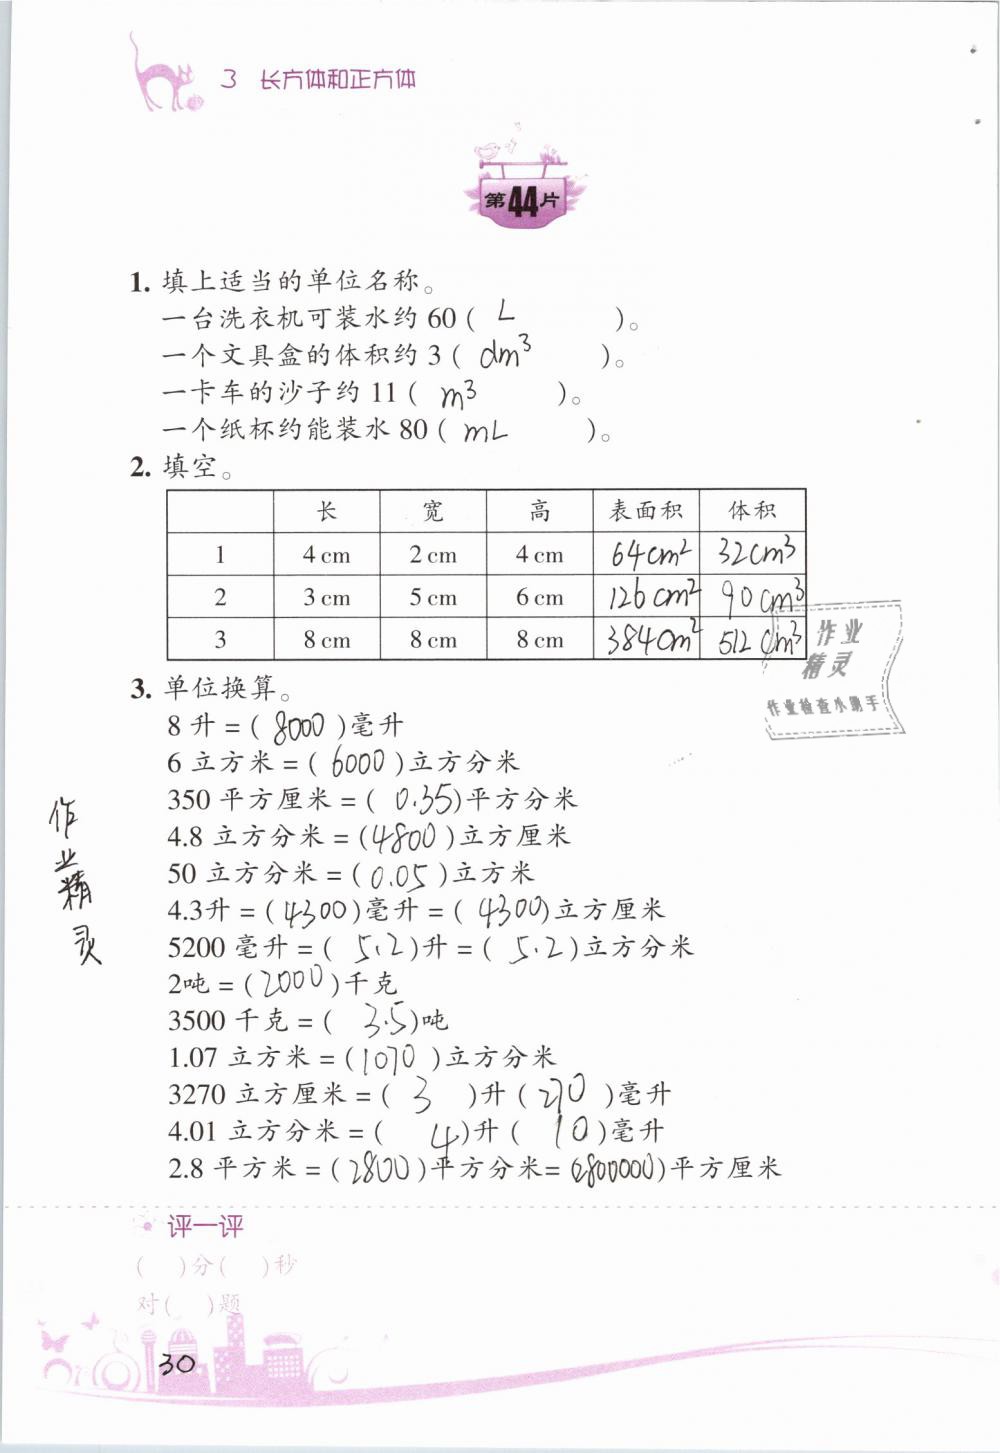 3 长方体和正方体
第44片
1. 填上适当的单位名称。
一台洗衣机可装水约 60 ( L )。
一个文具盒的体积约 3 ( dm³ )。
一卡车的沙子约 11 ( m³ )。
一个纸杯约能装水 80 ( mL )。
2. 填空。
长 宽 高 表面积 体积
1 4 cm 2 cm 4 cm 64cm² 32cm³
2 3 cm 5 cm 6 cm 126cm² 90cm³
3 8 cm 8 cm 8 cm 384cm² 512cm³
作业
精灵
作业检查小助手
3. 单位换算。
8 升 = ( 8000 )毫升
6 立方米 = ( 6000 )立方分米
350 平方厘米 = ( 0.35 )平方分米
4.8 立方分米 = ( 4800 )立方厘米
50 立方分米 = ( 0.05 )立方米
4.3升 = ( 4300 )毫升 = ( 4300 )立方厘米
5200 毫升 = ( 5.2 )升 = ( 5.2 )立方分米
2吨 = ( 2000 )千克
3500 千克 = ( 3.5 )吨
1.07 立方米 = ( 1070 )立方分米
3270 立方厘米 = ( 3 )升 ( 270 )毫升
4.01 立方分米 = ( 4 )升 ( 10 )毫升
2.8 平方米 = ( 2800 )平方分米= ( 2800000 )平方厘米
作业精灵
评一评
( )分( )秒
对( )题
30